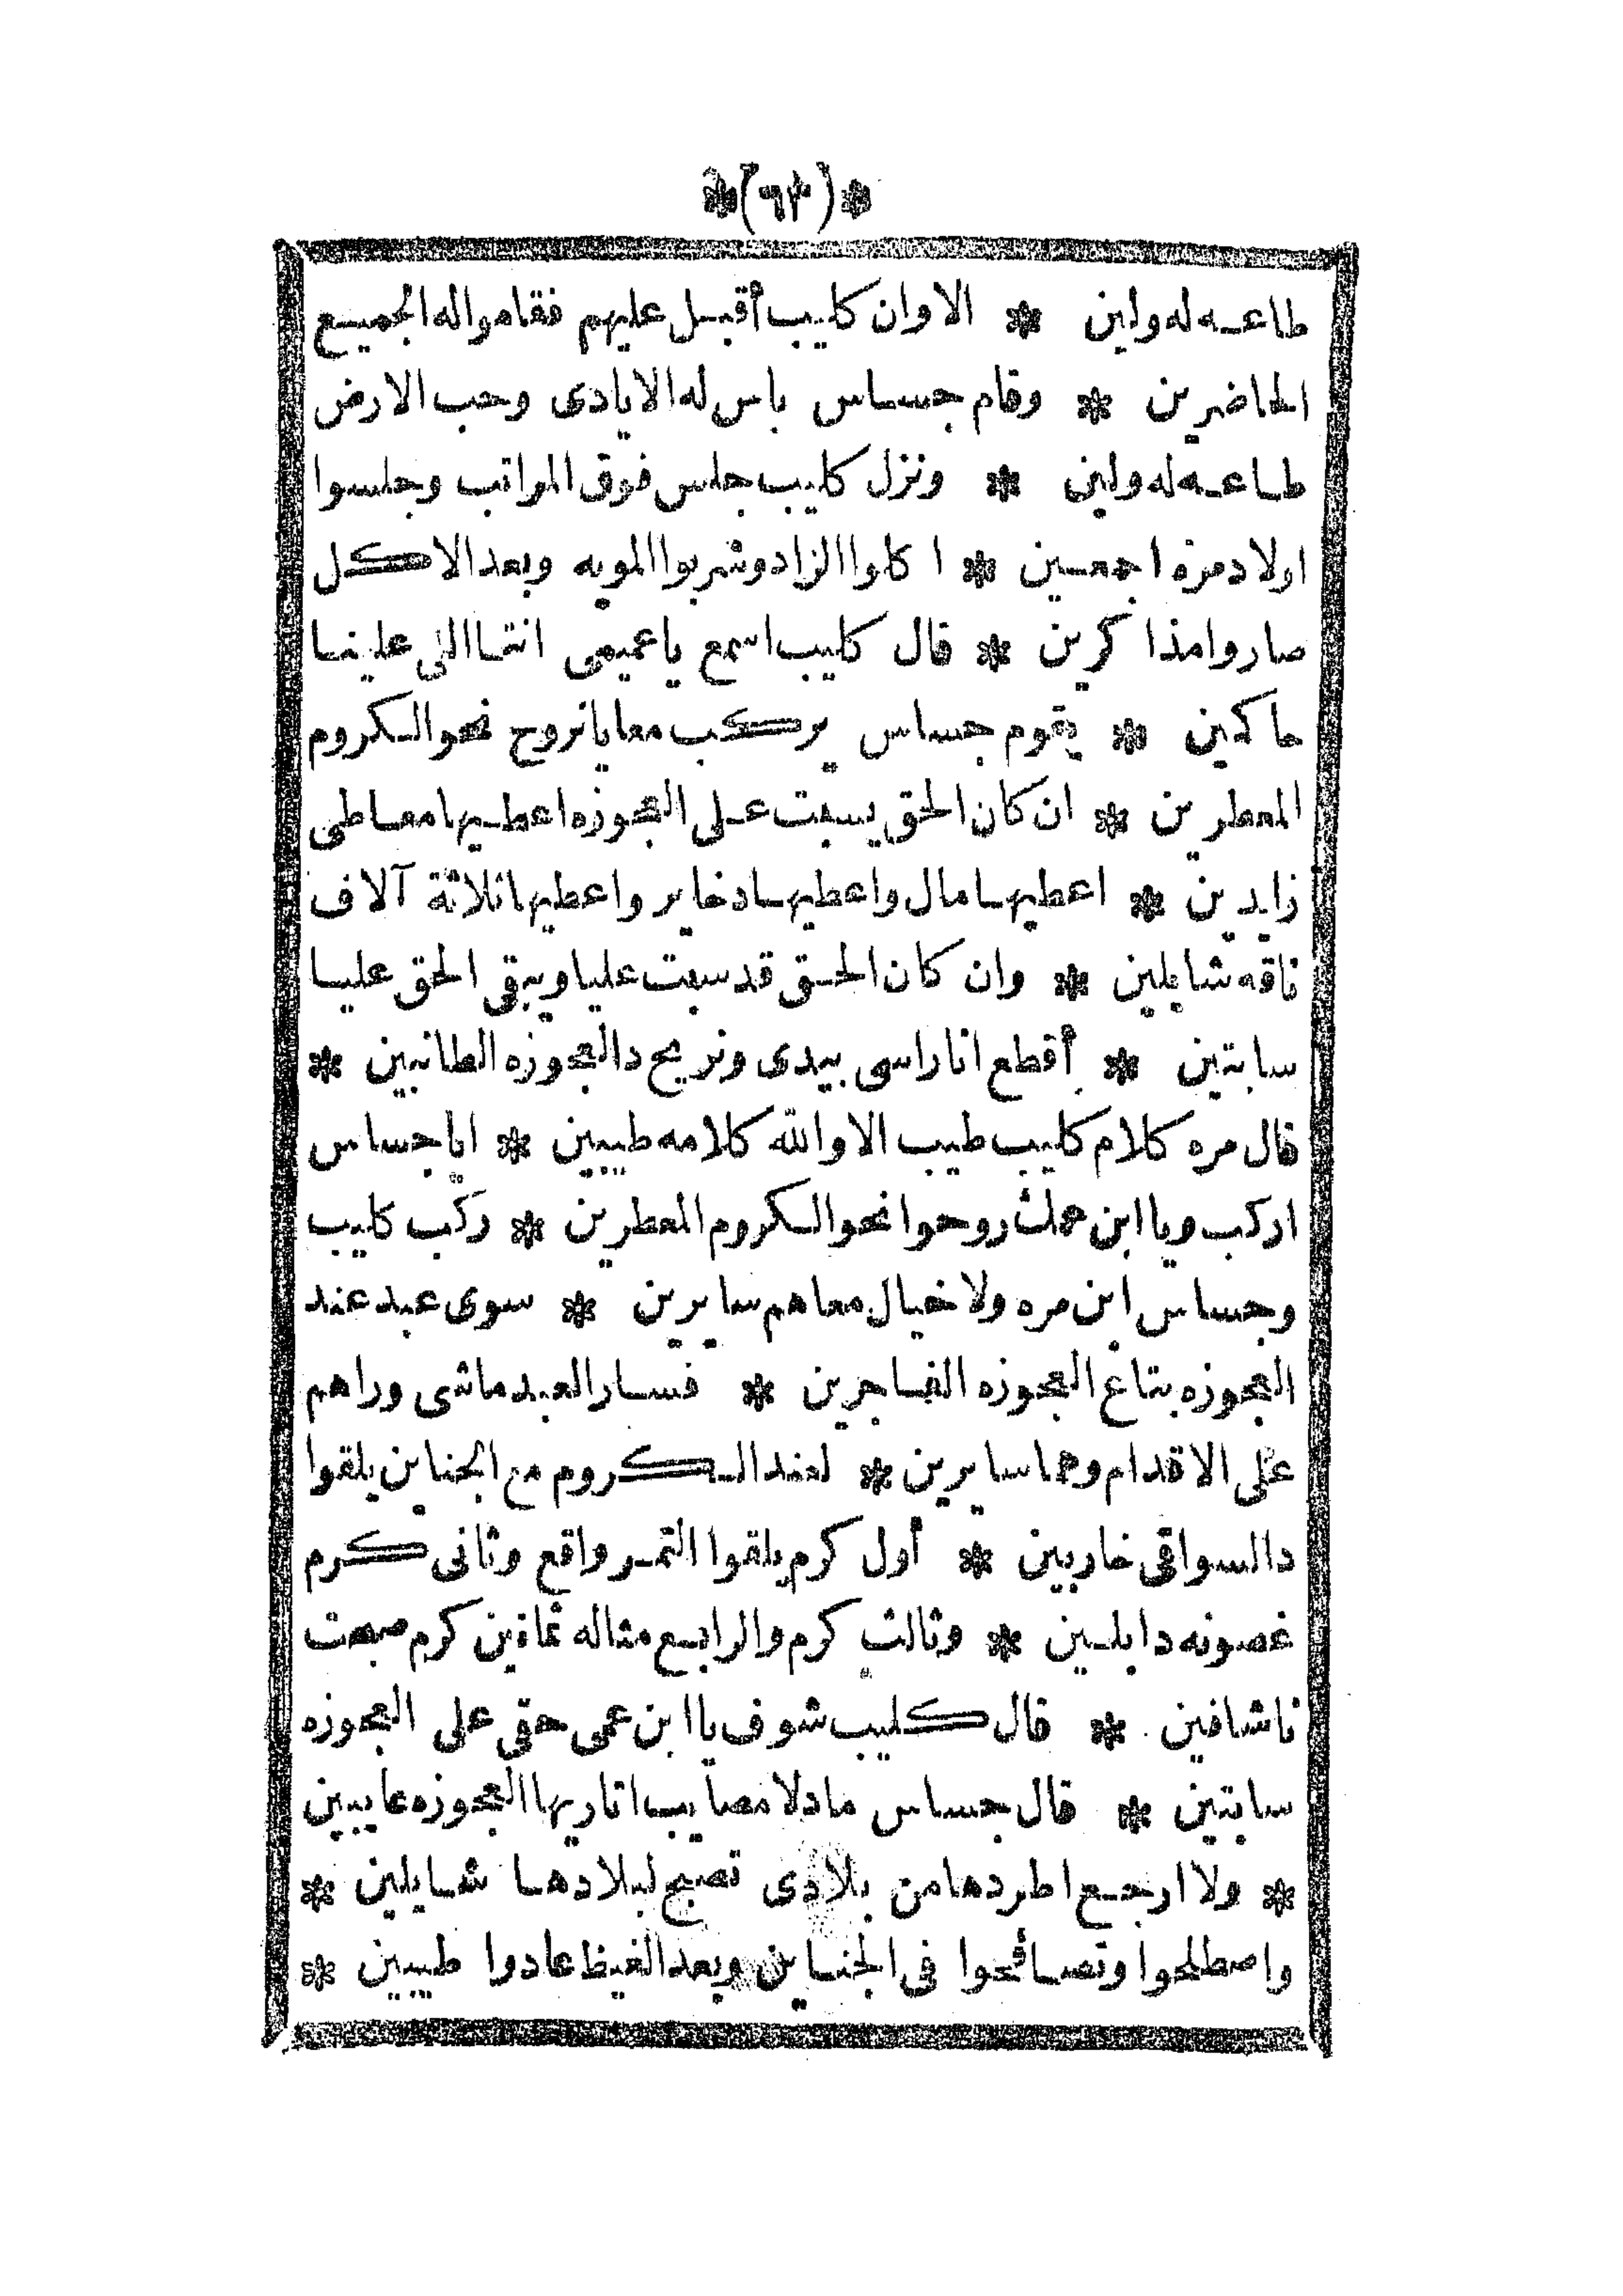 *(٦٣)*
طاعه له ولين * الا وان كليب أقبل عليهم فقاموا له الجميع
الحاضرين * وقام جساس باس له الايادى وحب الارض
طاعه له ولين * ونزل كليب جلس فوق المراتب وجلسوا
اولاد مره اجمعين * ا كلوا الزاد وشربوا المويه وبعد الاكل
صاروا مذا كرين * قال كليب اسمع يا عميمى انتا اللى علينا
حاكين * يقوم جساس يركب معايا نروح نحو الكروم
المعطرين * ان كان الحق يسبت على العجوزه اعطيها معاطى
زايدين * اعطيها مال واعطيها دخاير واعطيها ثلاثة آلاف
ناقه شايلين * وان كان الحق قد سبت عليا ويبقى الحق عليا
سابتين * أقطع انا راسى بيدى ونريح دالعجوزه الطانبين *
قال مره كلام كليب طيب الا والله كلامه طيبين * ايا جساس
اركب ويا ابن عمك روحوا نحو الكروم المعطرين * ركب كليب
وجساس ابن مره ولا خيال معاهم سايرين * سوى عبد عند
العجوزه بتاع العجوزه الفاجرين * فسار العبد ماشى وراهم
على الاقدام وهما سايرين * لعند الكروم مع الجناين يلقوا
دالسواقى خاربين * أول كرم يلقوا التمر واقع وثانى كرم
غصونه دابلين * وثالث كرم والرابع مثاله ثمانين كرم صبحت
ناشافين * قال كليب شوف يا ابن عمى حقى على العجوزه
سابتين * قال جساس مادلا مصايب اتاريها العجوزه عايبين
* ولا ارجع اطردها من بلادى تصبح لبلادها شايلين *
واصطلحوا وتصافحوا فى الجناين وبعد الغيظ عادوا طيبين *